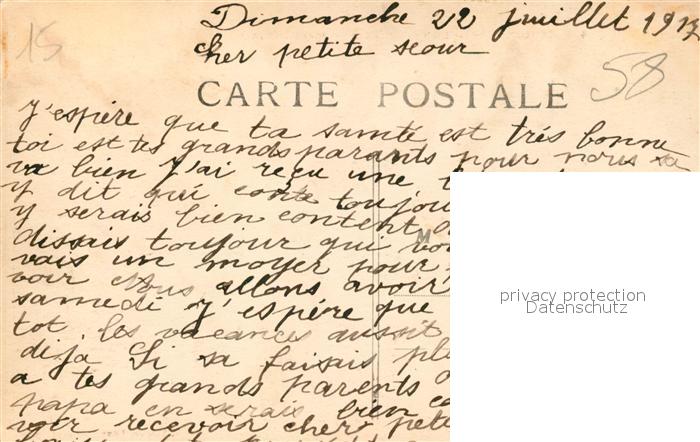 Dimanche 22 juillet 1917
15
cher petite seour
58
CARTE POSTALE
J'espére que ta samte est trés bonne
toi est tes grands parants pour nous sa
va bien j'ai reçu une
y dit qui conte toujou
y serais bien content
M
dissais toujour qui vou
vais un moyer pour
voir nous allons avoir
samedi J'espére que
tot les vacances aussit
dija Si sa faisais ple
a tes grands parents
papa en serais bien co
voir recevoir cher pete
privacy protection
Datenschutz